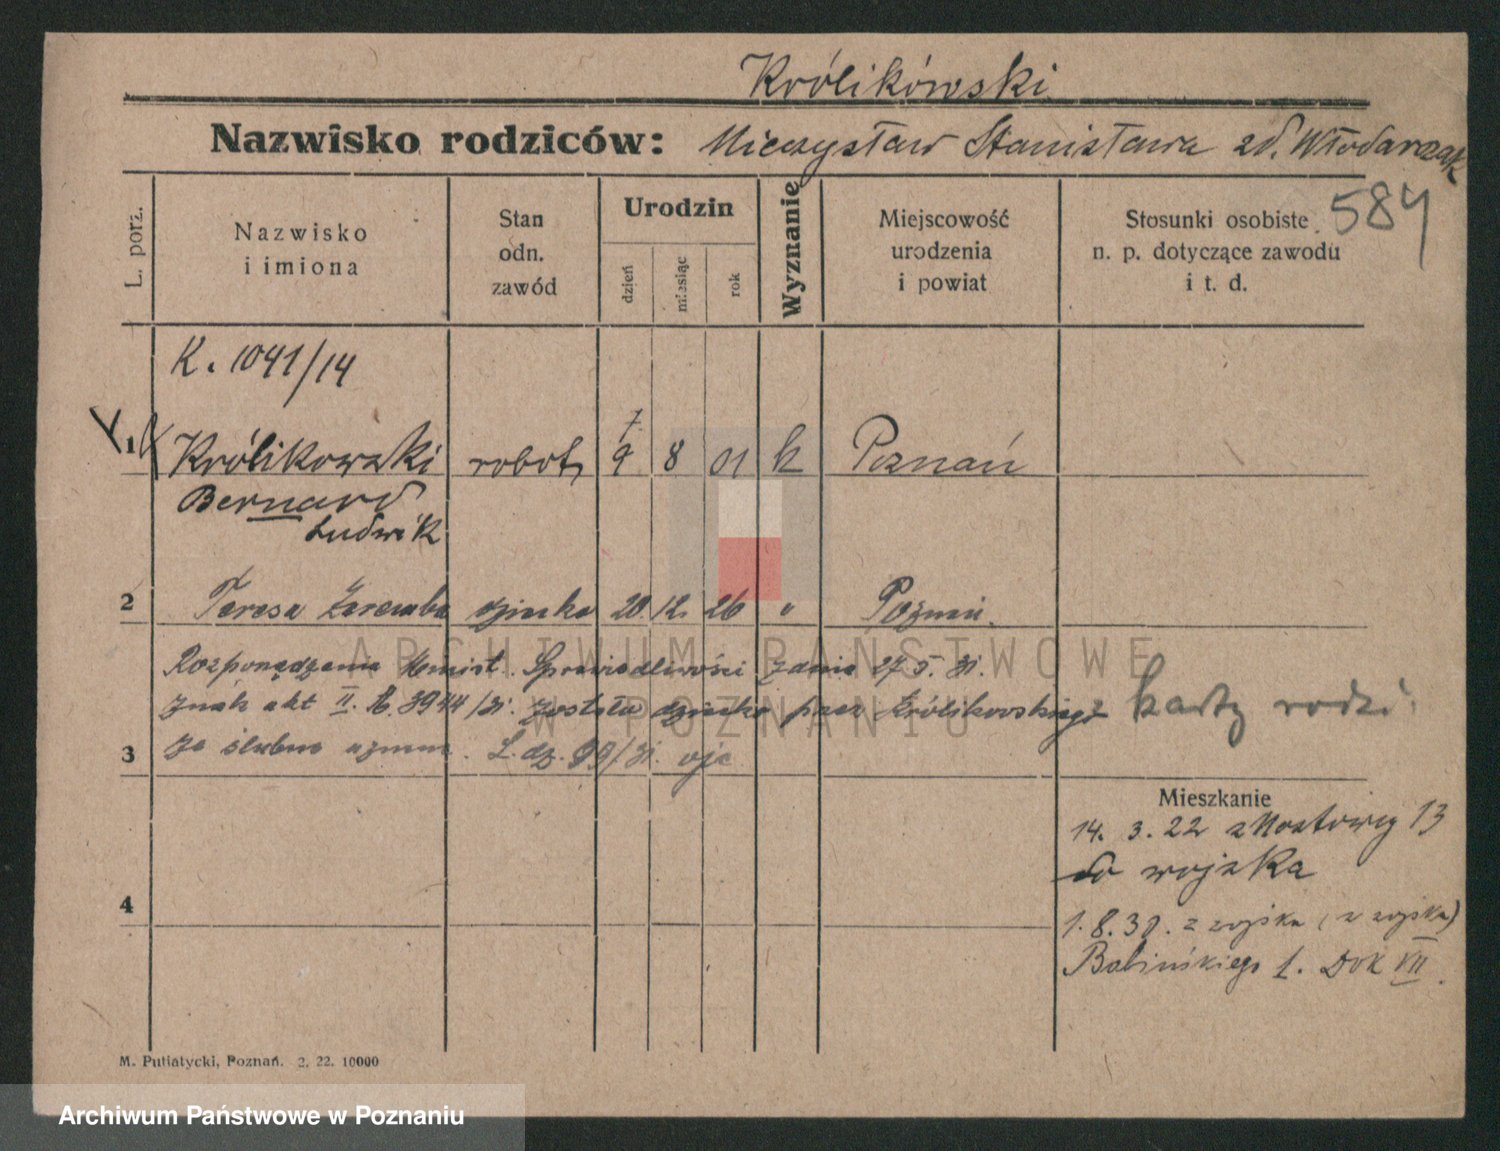 Królikówski
Nazwisko rodziców: Mieczysław Stanisława zd. Włodarczak
584
L. porz.
Nazwisko i imiona
Stan odn. zawód
Urodzin
dzień
miesiąc
rok
Wyznanie
Miejscowość urodzenia i powiat
Stosunki osobiste n. p. dotyczące zawodu i t. d.
K. 1041/14
7.
1 Królikowski robotn 9 8 01 k Poznań
Bernard
Ludwik
2 Teresa Zaremba dziecko 20. 12. 26 " Poznań.
Rozporządzenia Minist. Sprawiedliwości z dnia 27. 5. 31.
znak akt II. 3944/31. zostało dziecko przez Królikowskiego
z karty rodzi.
3 za ślubne uznane. L. dz. 99/31.
Mieszkanie
14. 3. 22 z Mostowej 13
do wojska
4
1. 8. 30. z wojska (z wojska)
Babińskiego 1. DOK VII.
M. Putiatycki, Poznań. 2. 22. 10000
ARCHIWUM PAŃSTWOWE
W POZNANIU
Archiwum Państwowe w Poznaniu